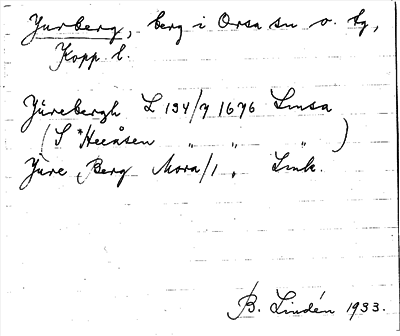 Yurberg, berg i Orsa sn o. tg,
Kopp. l.
Yûrebergh L 134/9 1676 Lmsa
(S *Heeåsen " " " )
Yúre Berg Mora/1 " Lmk.
B. Lindén 1933.